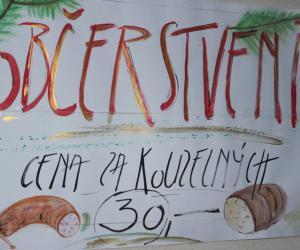 OBČERSTVENÍ
CENA ZA KOUZELNÝCH
30,-